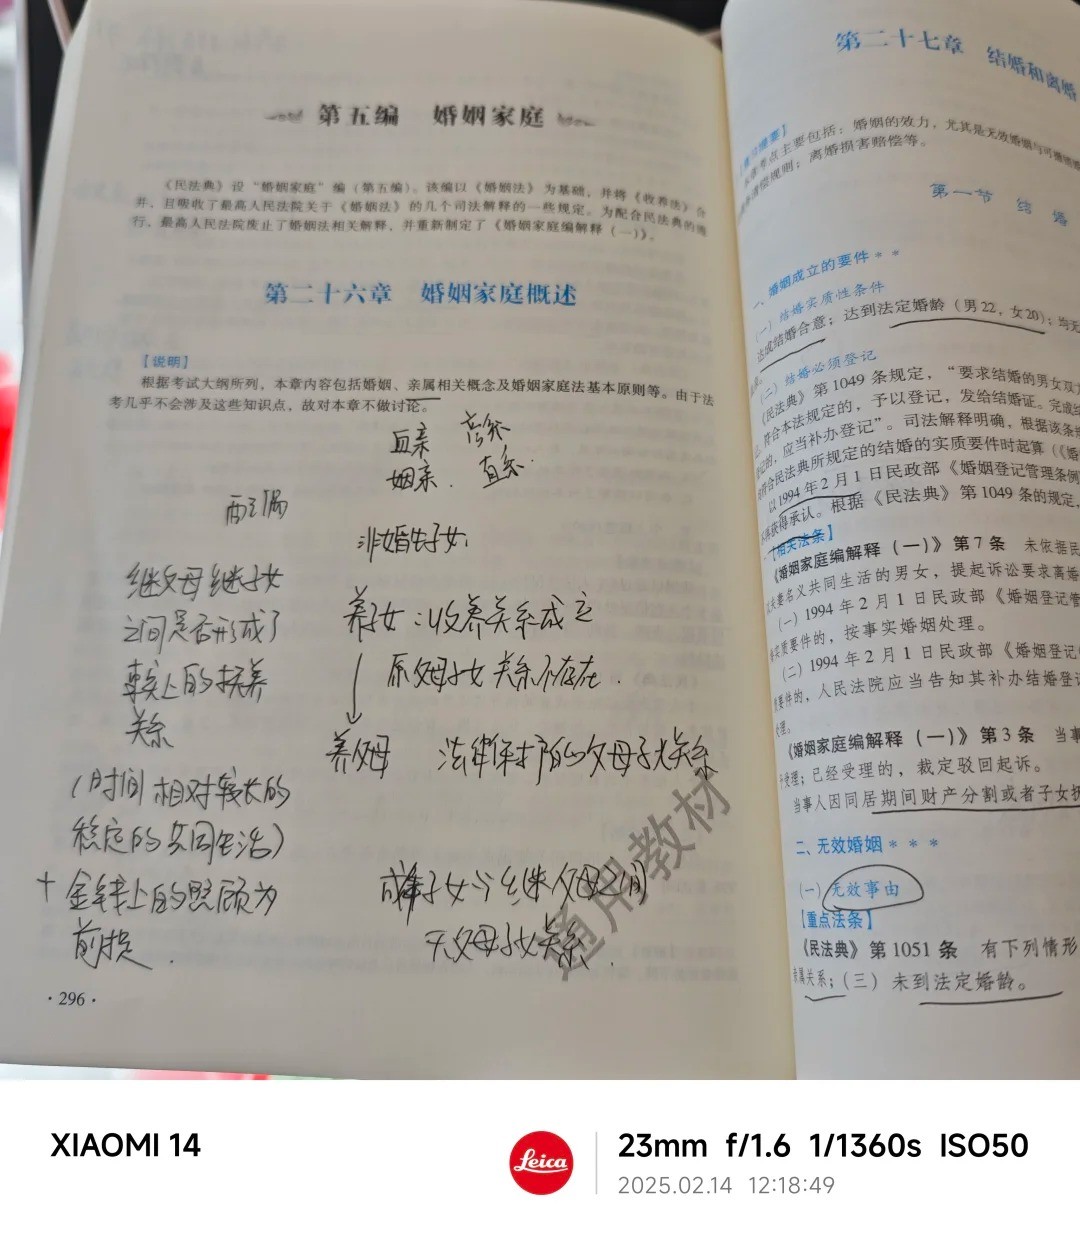 第五编 婚姻家庭
《民法典》设“婚姻家庭”编（第五编）。该编以《婚姻法》为基础，并将《收养法》合
并，且吸收了最高人民法院关于《婚姻法》的几个司法解释的一些规定。为配合民法典的施
行，最高人民法院废止了婚姻法相关解释，并重新制定了《婚姻家庭编解释（一）》。
第二十六章 婚姻家庭概述
【说明】
根据考试大纲所列，本章内容包括婚姻、亲属相关概念及婚姻家庭法基本原则等。由于法
考几乎不会涉及这些知识点，故对本章不做讨论。
血亲 旁系
姻亲． 直系．
配偶
非婚生子女
继父母继子女
之间是否形成了
事实上的抚养
关系
（时间相对较长的
稳定的共同生活）
+ 金钱上的照顾为
前提．
养子女：收养关系成立
原父母子女关系不存在．
养父母 法律保护的父母子女关系
成年子女与继父母之间
无父母子女关系．
通用教材
·296·
第二十七章 结婚和离婚
主要包括：婚姻的效力，尤其是无效婚姻与可撤销
清偿规则；离婚损害赔偿等。
第一节 结婚
一、婚姻成立的要件＊＊
（一）结婚实质性条件
达成结婚合意；达到法定婚龄（男22，女20）；均无
（二）结婚必须登记
《民法典》第1049条规定，“要求结婚的男女双方
符合本法规定的，予以登记，发给结婚证。完成
记的，应当补办登记”。司法解释明确，根据该条
符合民法典所规定的结婚的实质要件时起算（《婚
以1994年2月1日民政部《婚姻登记管理条例
不再获得承认。根据《民法典》第1049条的规定，
【相关法条】
《婚姻家庭编解释（一）》第7条 未依据民
以夫妻名义共同生活的男女，提起诉讼要求离婚
（一）1994年2月1日民政部《婚姻登记管
实质要件的，按事实婚姻处理。
（二）1994年2月1日民政部《婚姻登记
质要件的，人民法院应当告知其补办结婚登记
处理。
《婚姻家庭编解释（一）》第3条 当事
予受理；已经受理的，裁定驳回起诉。
当事人因同居期间财产分割或者子女抚
二、无效婚姻＊＊＊
（一）无效事由
【重点法条】
《民法典》第1051条 有下列情形
亲属关系；（三）未到法定婚龄。
XIAOMI 14
Leica
23mm f/1.6 1/1360s ISO50
2025.02.14 12:18:49